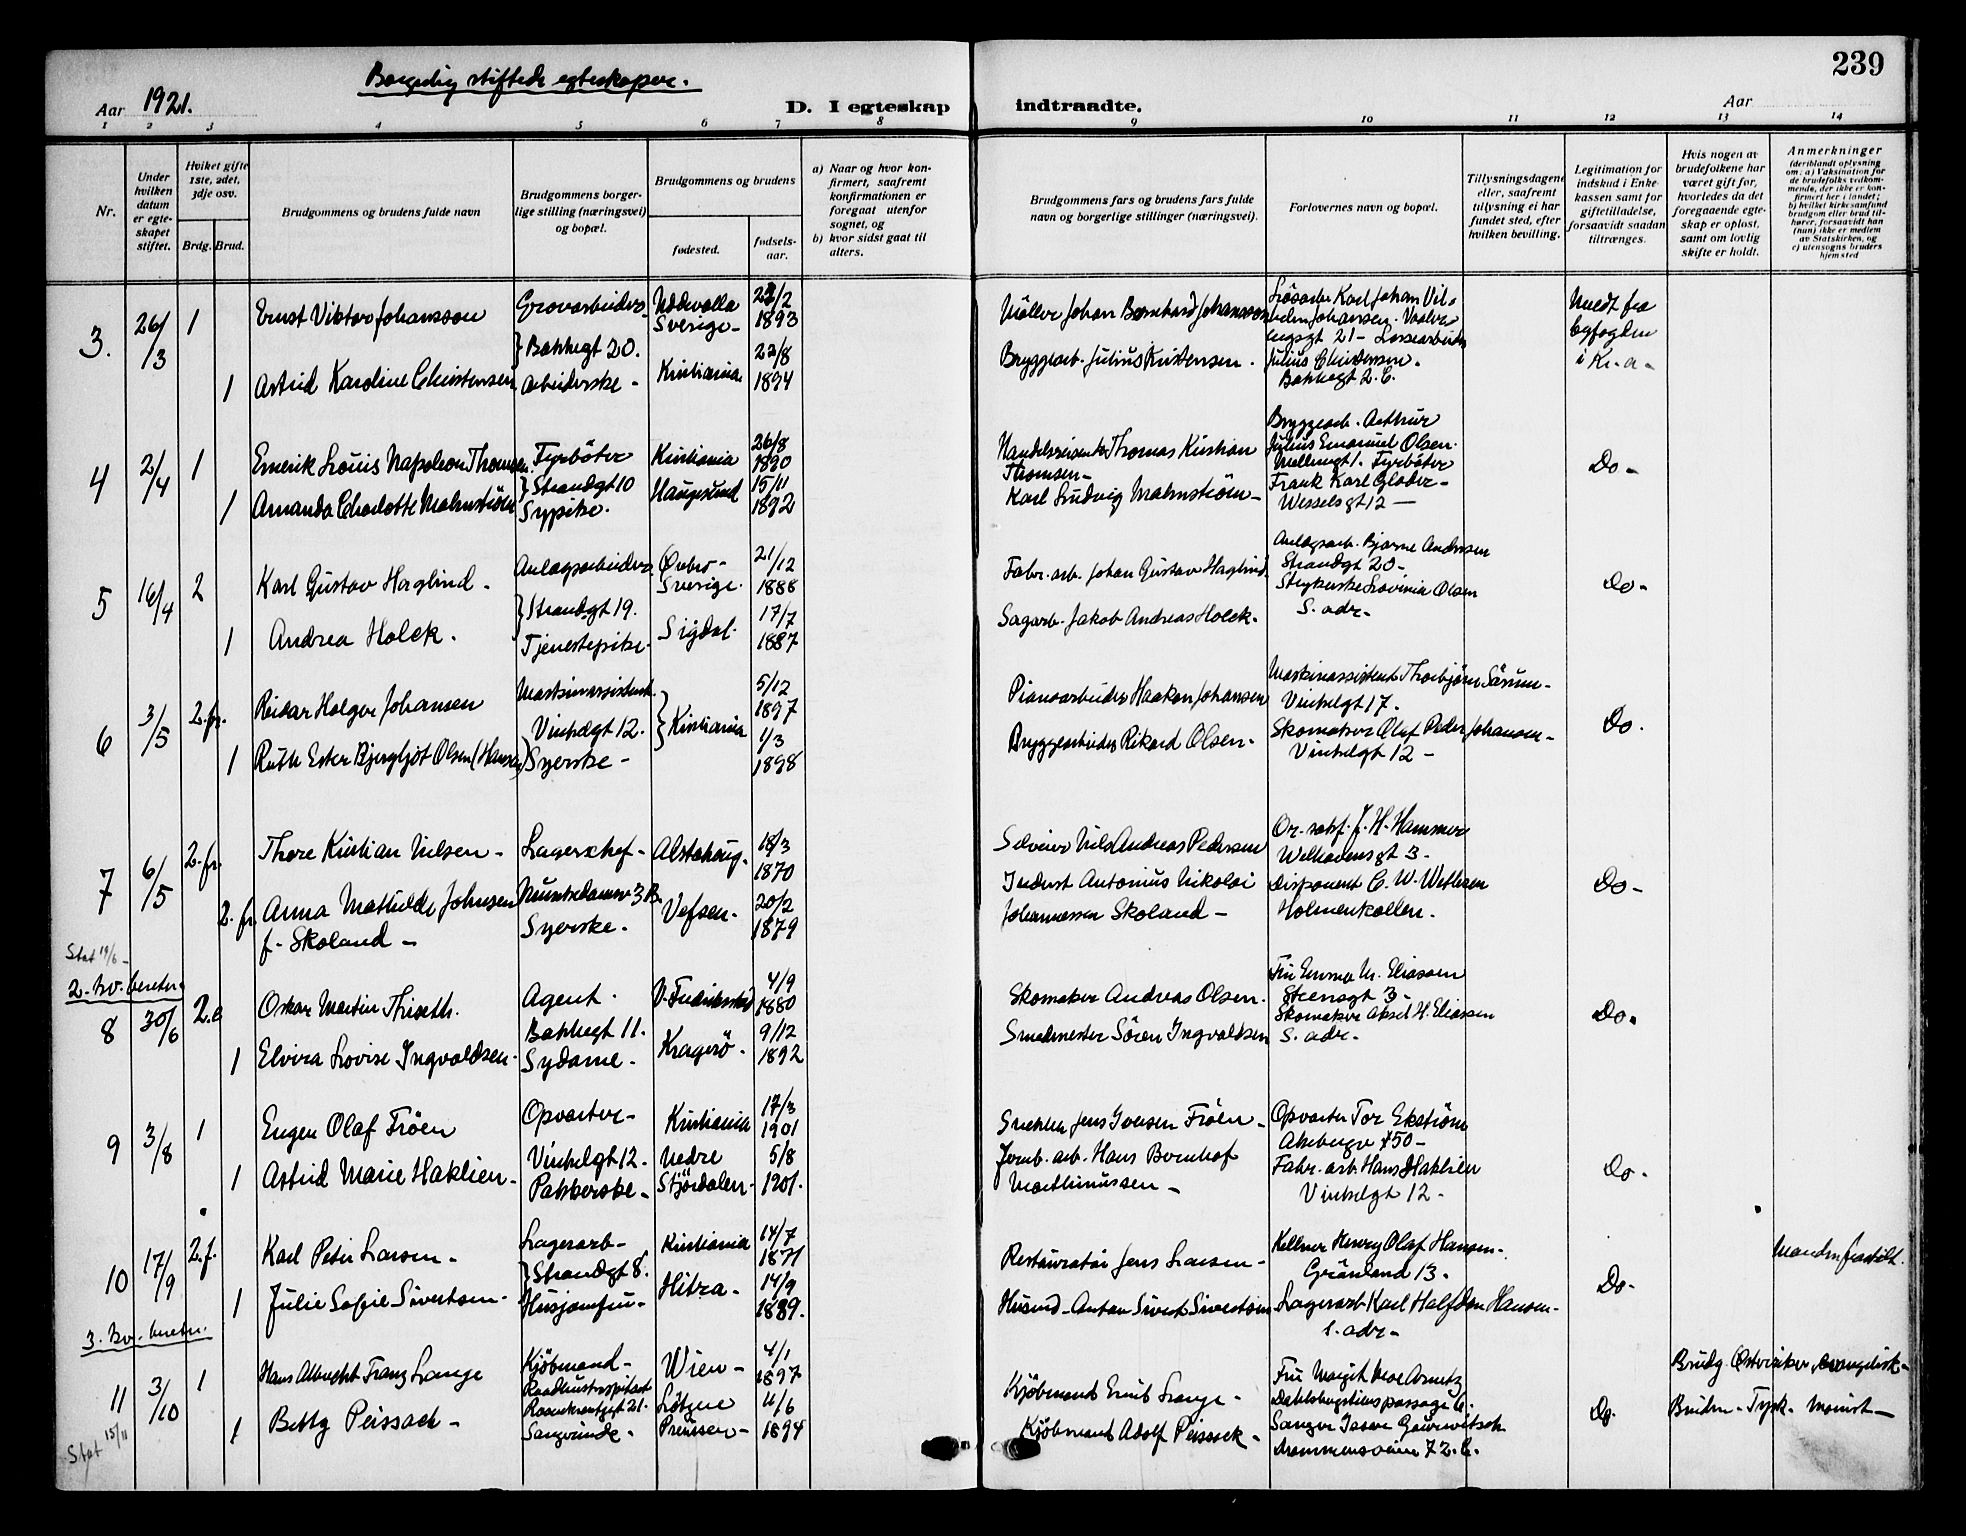 239
Borgerlig stiftede egteskaper.
Aar 1921.
D. I egteskap indtraadte.
Aar
1 2 3 4 5 6 7 8 9 10 11 12 13 14
Nr.
Under hvilken datum er egteskapet stiftet.
Hviket gifte 1ste, 2det, 3dje osv.
Brdg. Brud.
Brudgommens og brudens fulde navn
Brudgommens borgerlige stilling (næringsvei) og bopæl.
Brudgommens og brudens
fødested.
fødselsaar.
a) Naar og hvor konfirmert, saafremt konfirmationen er foregaat utenfor sognet, og
b) hvor sidst gaat til alters.
Brudgommens fars og brudens fars fulde navn og borgerlige stillinger (næringsvei).
Forlovernes navn og bopæl.
Tillysningsdagene eller, saafremt tillysning ei har fundet sted, efter hvilken bevilling.
Legitimation for indskud i Enkekassen samt for giftetilladelse, forsaavidt saadan tiltrænges.
Hvis nogen av brudefolkene har været gift før, hvorledes da det foregaaende egteskap er opløst, samt om lovlig skifte er holdt.
Anmerkninger (deriblandt oplysning om: a) Vaksination for de brudefolks vedkommende, der ikke er konfirmert her i landet; b) hvilket kirkesamfund brudgom eller brud tilhører, forsaavidt han (hun) ikke er medlem av Statskirken, og c) utensogns bruders hjemsted
3. 26/3 1 Ernst Viktor Johansson Grovarbeider Uddevalla Sverige 22/2 1893
Bakkegt 20.
1 Astrid Karoline Christensen arbeiderske - Kristiania 22/8 1894
Møller Johan Bernhard Johansson
Bryggearb. Julius Kristensen.
Karl Johan Vil-
Johansen. Vaaler-
engsgt 21 - Lossearbeider
Julius Christensen.
Bakkegt 2. C.
Meldt fra byfogden i Kr.a-
4 2/4 1 Emerik Louis Napoleon Thomsen. Fyrbøter Kristiania 26/8 1890
Strandgt 10
1 Amanda Charlotte Malmstrøm Sypike. Haugesund 15/11 1892
Handelsreisende Thomas Kristian Thomsen -
Karl Ludvig Malmstrøm -
Bryggearb. Arthur
Julius Emanuel Olsen.
Møllergt 1. Fyrbøter
Frank Karl Glader -
Wesselsgt 12 -
Do -
5 16/4 2 Karl Gustav Haglind - Anlægsarbeider Ørebro - Sverige. 21/12 1888
Strandgt 19.
1 Andrea Holck. Tjenestepike - Sigdal. 17/7 1887
Fabr. arb. Johan Gustav Haglind.
Sagarb. Jakob Andreas Holck.
Anlægsarb. Bjarne Andersen
Strandgt 20 -
Strykerske Lovinia Olsen
S. adr -
Do -
6 3/5 2. fr. Reidar Holger Johansen Maskinassistent. Kristiania 5/12 1897
Vinkelgt 12.
1 Ruth Ester Bjergljot Olsen (Hansen) Syerske - 1/3 1898
Pianoarbeider Haakon Johansen
Bryggearbeider Rikard Olsen -
Maskinassistent Thorbjørn Sørum -
Vinkelgt 17.
Skomaker Olaf Peder Johansen -
Vinkelgt 12 -
Do.
7 6/5 2. fr. Thore Kristian Nilsen - Lagerchef - Alstahaug. 18/3 1870
Munkedamsv 3 B.
2. fr. Anna Mathilde Johnsen f. Skoland - Syerske. Vefsen. 20/2 1879
Selveier Nils Andreas Pedersen
Inderst Antonius Nikolai
Johannessen Skoland -
Or. sakf. J. H. Hammer
Welhavensgt 3 -
Disponent C. W. Wethren
Holmenkollen.
Do -
Stat 19/6 -
2. kv. beretn.
8 30/6 2. e Oskar Martin Thiseth. Agent. V. Fredrikstad 4/9 1880
Bakkegt 11.
1 Elvira Lovise Ingvaldsen - Sydame - Kragerø. 9/12 1892
Skomaker Andreas Olsen.
Smedmester Søren Ingvaldsen
Fru Emma M. Eliassen
Steensgt 3 -
Skomaker Aksel H. Eliassen
S. adr -
Do.
9 3/8 1 Eugen Olaf Frøen Opvarter - Kristiania 17/3 1901
Vinkelgt 12.
1 Astrid Marie Haklien - Pakkerske - Nedre Stjørdalen - 5/8 1901.
Snekker Jens Iversen Frøen -
Jernb. arb. Hans Bernhof
Marthinussen -
Opvarter Tor Ekstrøm
Akebergv 50 -
Fabr. arb. Hans Haklien
Vinkelgt 12 -
Do -
10 17/9 2. f. Karl Peter Larsen - Lagerarb - Kristiania 14/7 1871
Strandgt 8.
1 Julie Sofie Sivertsen - Husjomfru - Hitra - 14/9 1889.
Restauratør Jens Larsen -
Husmd. Anton Sivert Sivertsen
Kellner Henry Olaf Hansen -
Grønland 13.
Lagerarb Karl Halfdan Hansen -
s. adr -
Do -
Manden fraskilt.
3. kv. beretn.
11 3/10 1 Hans Albrecht Franz Lange Kjøbmand - Wien - 4/1 1897
Raadhushospitset
Rosenkrantzgt 21.
1 Betty Peissach - Sangerinde - Lötzen Preussen - 11/6 1894
Kjøbmand Emil Lange -
Kjøbmand Adolf Peissack -
Fru Margit Arnetz
Dahlsbergstiens passage 6.
Sanger Issar Gourewitsch
Drammensveien 72. C.
Do.
Brudg. Østeriker, evangelisk -
Bruden - Tysk. monist -
Stat 15/11